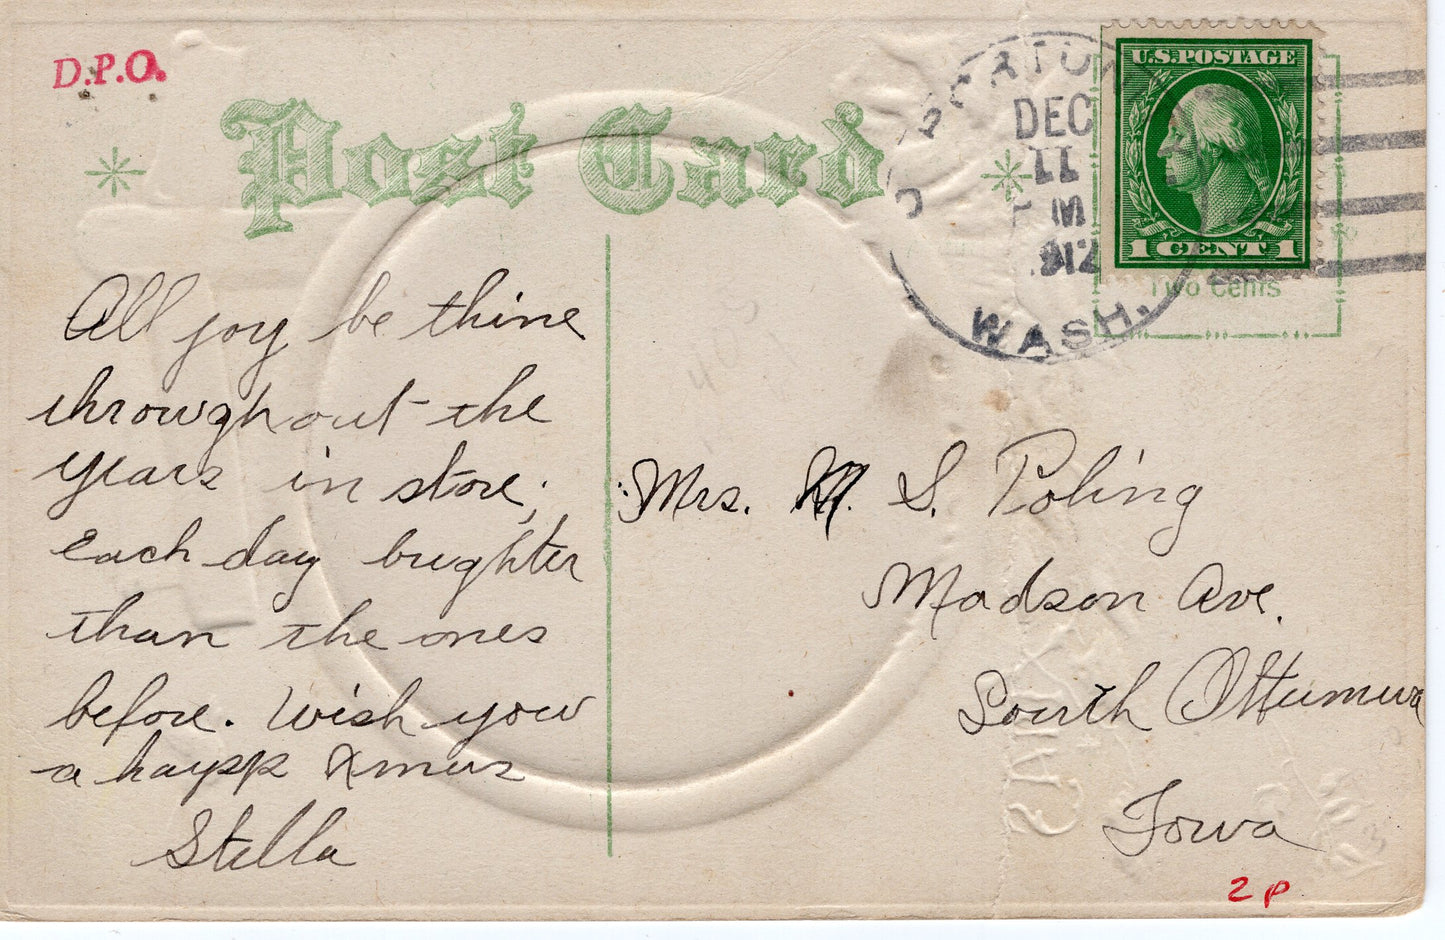 D.P.O.
Post Card
DEC
11
M
1912
WASH.
U.S. POSTAGE
1 CENT 1
Two Cents
All joy be thine
throughout the
years in store;
Each day brighter
than the ones
before. Wish you
a haypp Xmus
Stella
Mrs. M. S. Poling
Madson Ave.
South Ottumwa
Iowa
2 P